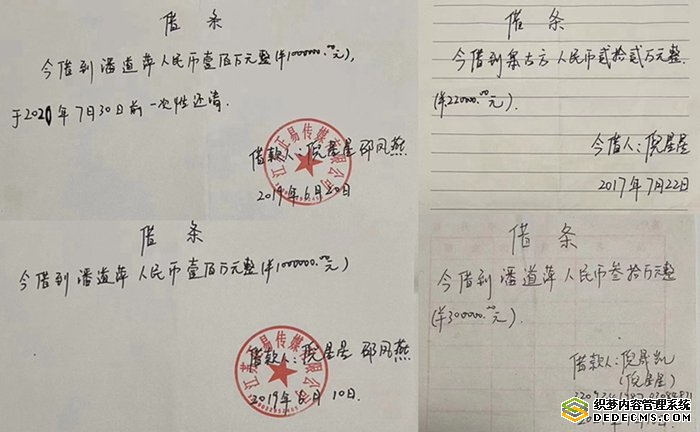 借条
今借到潘道萍人民币壹百万元整(¥1000000.00元),
于2021年7月30日前一次性还清.
借款人:倪星星 邵凤燕
2019年6月20日
借条
今借到 人民币贰拾贰万元整.
(¥22000.00元).
今借人:倪星星
2017年7月22日
借条
今借到潘道萍人民币壹佰万元整(¥1000000.00元)
借款人:倪星星 邵凤燕
2019年6月10日.
借条
今借到潘道萍人民币叁拾万元整
(¥300000.00元).
借款人:倪
(倪星星)
织梦内容管理系统
DEDECMS.COM